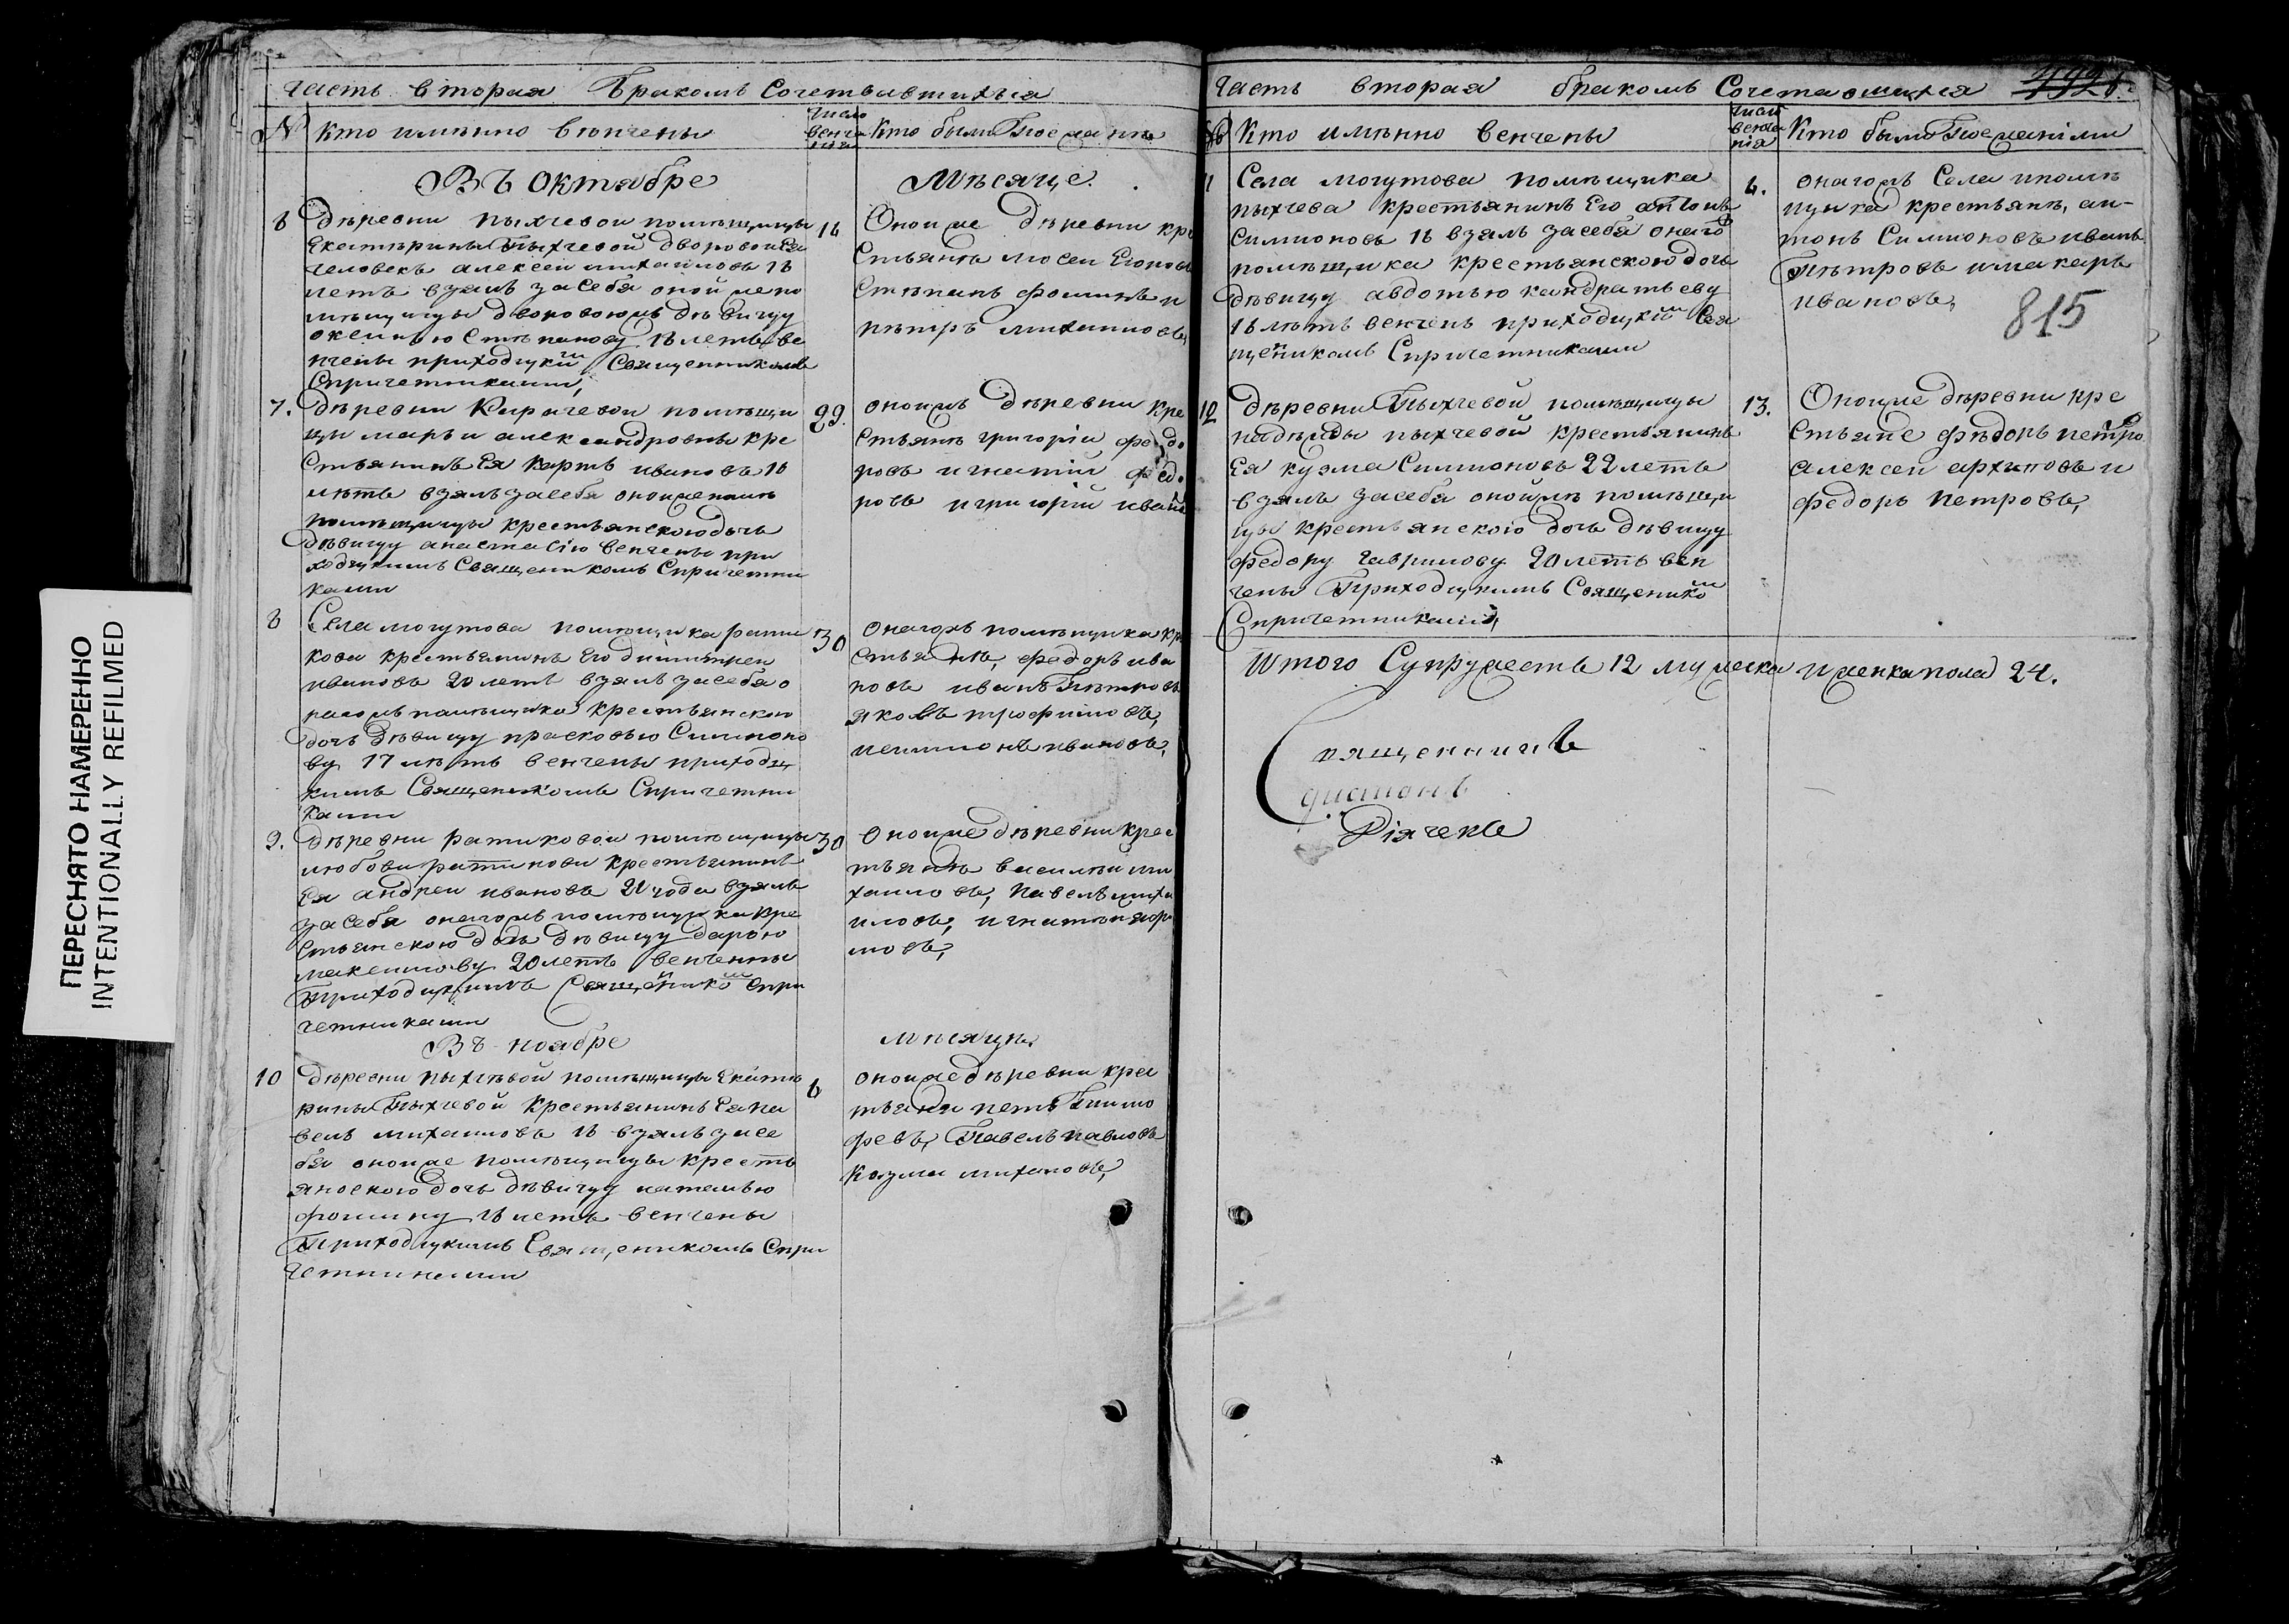 ПЕРЕСНЯТО НАМЕРЕННО
INTENTIONALLY REFILMED
часть вторая бракомъ Сочетавшихъся
№ кто имѣнно вѣнчены
Число венча нiя
кто были Поезжане
Въ Октябре Мѣсяце.
6 дѣревни пыхчевои помѣщицы
Екатѣрины Пыхчевой дворовои Ея
человекъ алексеи михаиловъ 18
летъ взялъ засебя оной же по
мѣщицы дворовоюжъ дѣвицу
Стѣпанову 18 летъ ве
нчены приходцким Священникомъ
Спричетниками,
16
Оноиже дѣревни кре
стьянѣ мосеи
Стѣпанъ фоминъ и
пѣтръ михаиловъ,
7. дѣревни Кирачевои помѣщи
цы марьи александровны кре
стьянинъ Ея карпъ ивановъ 18
лѣтъ взялъ засебя оноиже
помѣщицы крестьянскою дочь
дѣвицу анастасiю венчены при
ходцкимъ Священикомъ Спричетни
ками
29.
оноижъ дѣревни кре
стьянѣ григорiи федо
ровъ игнатiй федо
ровъ игригорiй
8 Села могутова помѣщика рати
кова крестьянинъ Его димитреи
ивановъ 20 летъ взялъ засебя о
нагожъ помѣщика крестьянскою
дочь дѣвицу прасковью Симионо
ву 17 лѣтъ венчены приходц
кимъ Священикомъ Спричетни
ками
30
онагожъ помѣщика кре
стьянѣ, федоръ ива
новъ иванъ Пѣтровъ
яковъ трофимовъ,
исимионъ ивановъ,
9. дѣревни ратиковои помѣщицы
любови ратиковои крестьянинъ
Ея андреи ивановъ 21 года взялъ
засебя онагожъ помѣщика кре
стьянскою дочь дѣвицу дарью
максимову 20 летъ венчены
Приходцкимъ Священико Спри
четниками
30
Оноиже дѣревни крес
тьянѣ василеи ми
хаиловъ, павелъ миха
иловъ, игнатеи
мовъ,
Въ ноябре мѣсяцѣ.
10 дѣревни пыхчевой помѣщицы Екатѣ
рины Пыхчевой крестьянинъ Ея па
велъ михаиловъ 18 взялъ засе
бя оноиже помѣщицы кресть
янскою дочь дѣвицу наталью
фомину 18 летъ венчены
Приходцкимъ Священикомъ Спри
четниками
6
оноиже дѣревни крес
тьяни петръ тимо
февъ, Павелъ павловъ
козма михаловъ,
часть вторая бракомъ Сочетавшихся
№ Кто имѣнно венчены
Число венча нiя
Кто были Поезжанiми
815
11 Села могутова помѣщика
пыхчева крестьянинъ Его антонъ
Симионовъ 18 взялъ засебя онаго
помѣщика крестьянскою дочь
дѣвицу авдотью кандратьеву
18 лѣтъ венчены приходцким Свя
щеникомъ Спричетниками
6.
онагожъ Села ипомѣ
щика крестьянѣ, ан-
тонъ Симионовъ иванъ
Пѣтровъ имакаръ
ивановъ,
12 дѣревни Пыхчевой помѣщицы
надѣжды пыхчевой крестьянинъ
Ея кузма Симионовъ 22 летъ
взялъ засебя онойжѣ помѣщи
цы крестьянскою дочь дѣвицу
федору гаврилову 20 летъ вен
чены Приходцкимъ Священико
Спричетниками,
13.
Оноиже дѣревни кре
стьянѣ фѣдоръ петро
алексеи архиповъ и
федоръ петровъ,
Итого Супружествъ 12 мужеска иженка пола 24.
Священникъ
диаконъ
Дiячекъ